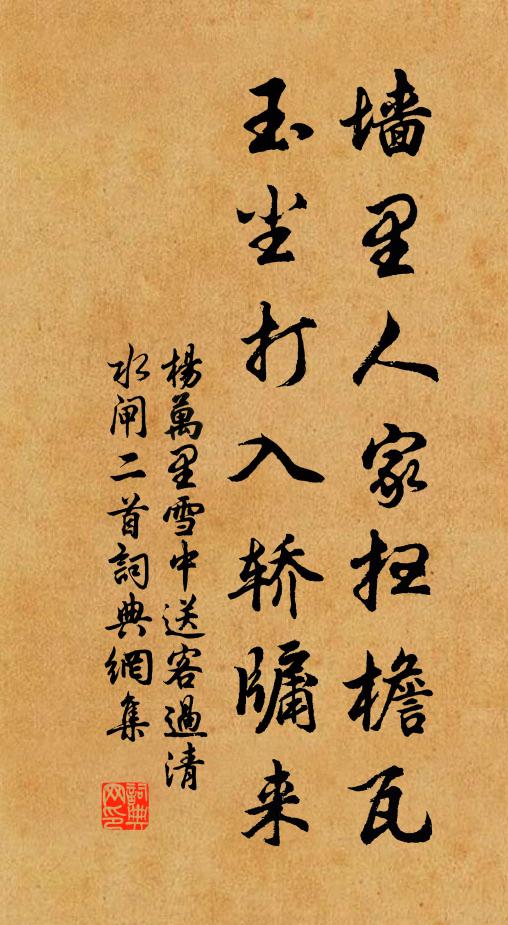 墙里人家扫檐瓦
玉尘打入轿牖来
杨萬里雪中送客過清
水闸二首詞典網集
詞典网印